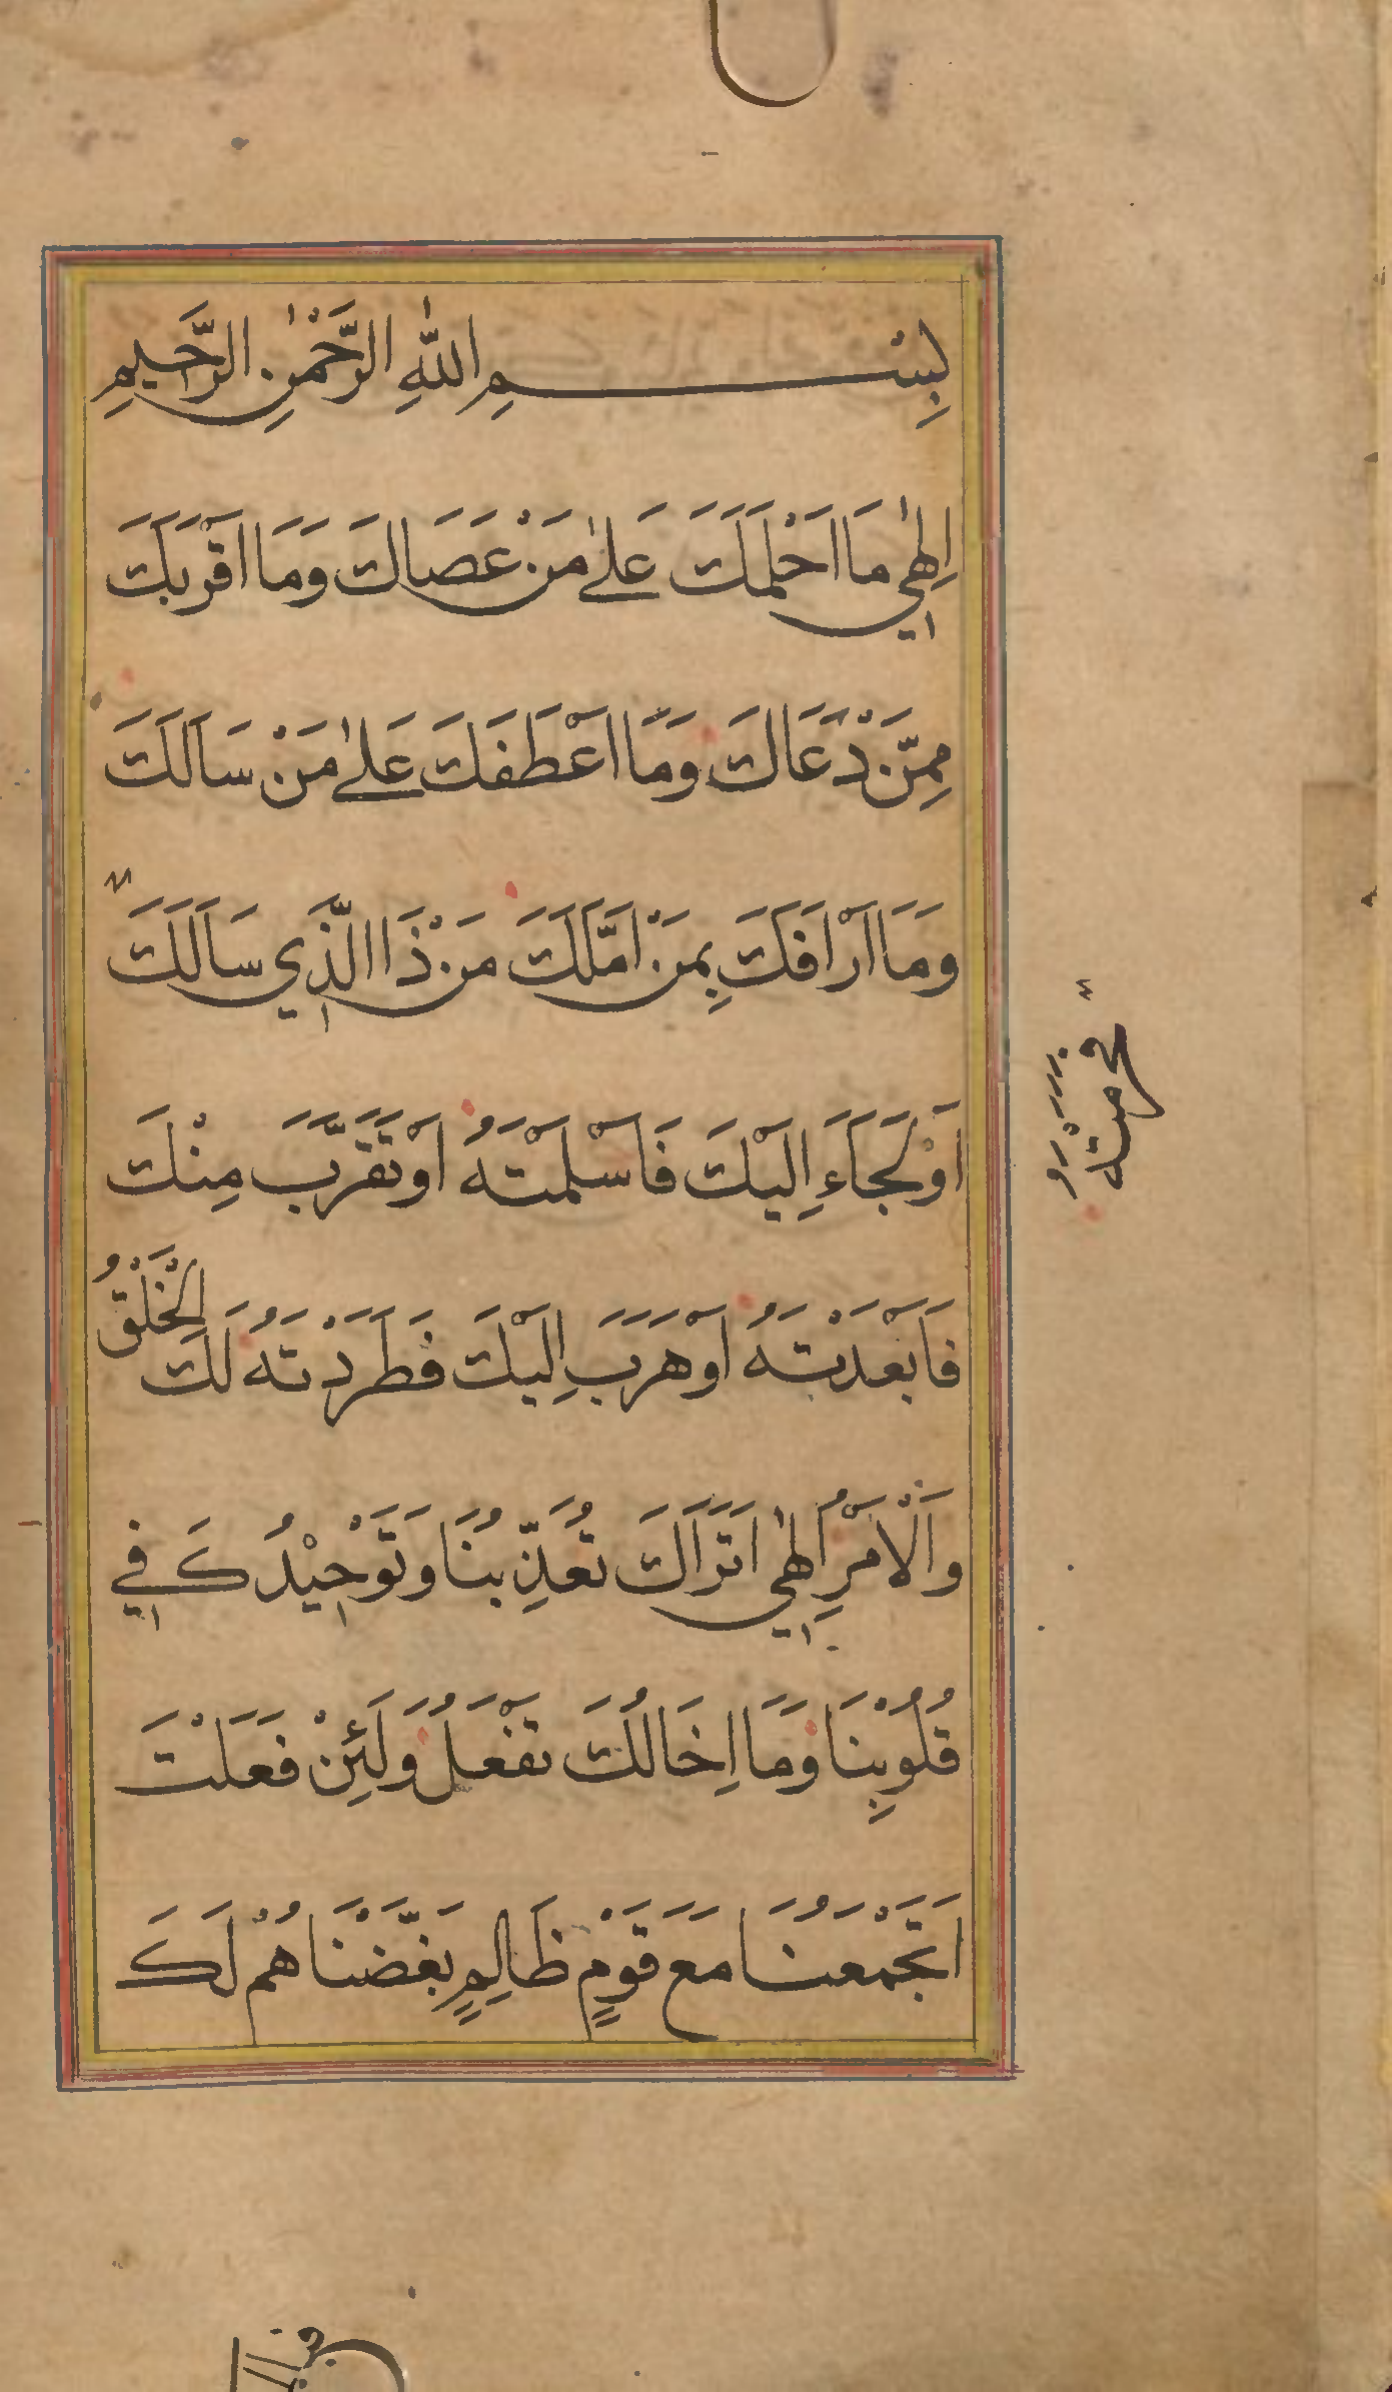 بِسْمِ اللّٰهِ الرَّحْمٰنِ الرَّحِيمِ
اِلٰهِي مَا اَحْلَمَكَ عَلٰى مَنْ عَصَاكَ وَمَا اَقْرَبَكَ
مِمَّنْ دَعَاكَ وَمَا اَعْطَفَكَ عَلٰى مَنْ سَاَلَكَ
وَمَا اَرْاَفَكَ بِمَنْ اَمَّلَكَ مَنْ ذَا الَّذِي سَاَلَكَ
فحرمته
اَوْ لَجَاَءَ اِلَيْكَ فَاَسْلَمْتَهُ اَوْ تَقَرَّبَ مِنْكَ
فَاَبْعَدْتَهُ اَوْ هَرَبَ اِلَيْكَ فَطَرَدْتَهُ لَكَ الْخَلْقُ
وَالْاَمْرُ اِلٰهِي اَتَرَاكَ تُعَذِّبُنَا وَتَوْحِيْدُكَ فِي
قُلُوْبِنَا وَمَا اِخَالُكَ تَفْعَلُ وَلَئِنْ فَعَلْتَ
اَتَجْمَعُنَا مَعَ قَوْمٍ ظَالِمٍ بَغَّضْنَاهُمْ لَكَ